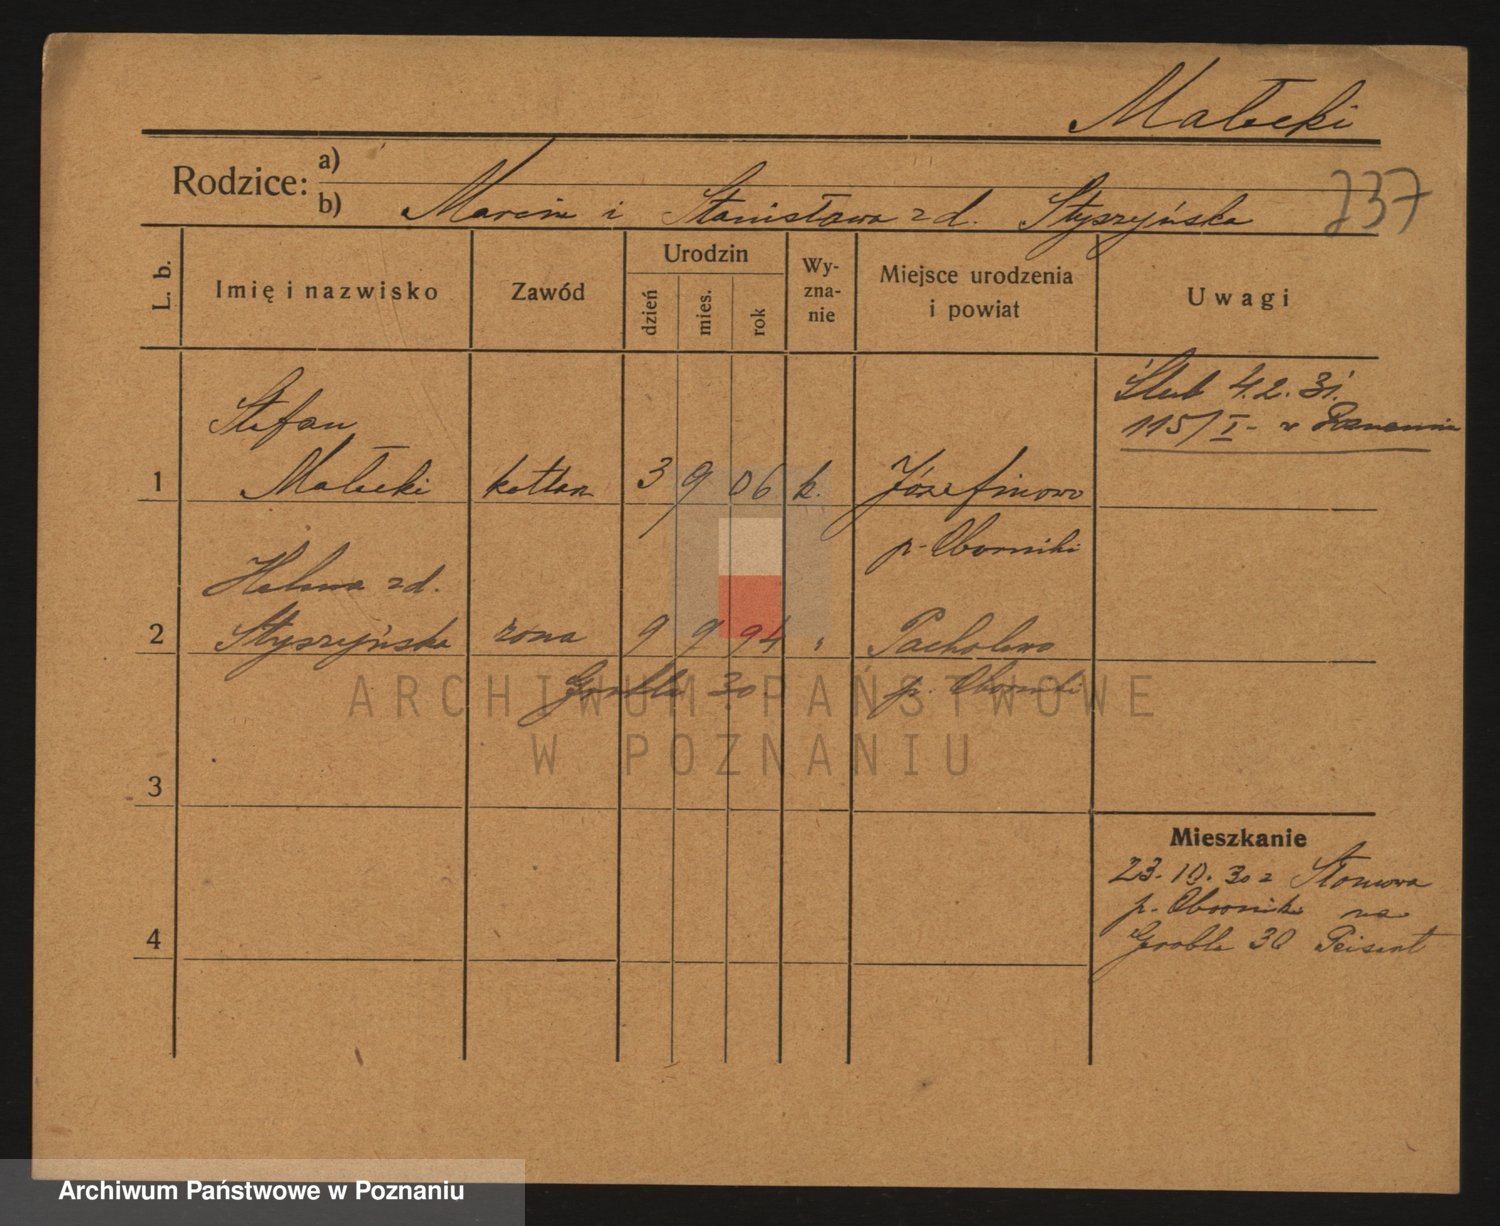 Małecki
Rodzice: a)
b) Marcin i Stanisława zd. Styszyńska
737
L. b.
Imię i nazwisko
Zawód
Urodzin
dzień
mies.
rok
Wy-
zna-
nie
Miejsce urodzenia
i powiat
Uwagi
Ślub 4.2.31.
115/I - w Poznaniu
Stefan
1 Małecki kotlarz 3 9 06 k. Józefinowo
p. Oborniki
Helena zd.
2 Styszyńska żona 9 9 94 " Pacholewo
Grobla 30 p. Oborniki
ARCHIWUM PAŃSTWOWE
W POZNANIU
3
Mieszkanie
23.10.30 z Słonawa
p. Oborniki na
4
Grobla 30 Peisert
Archiwum Państwowe w Poznaniu